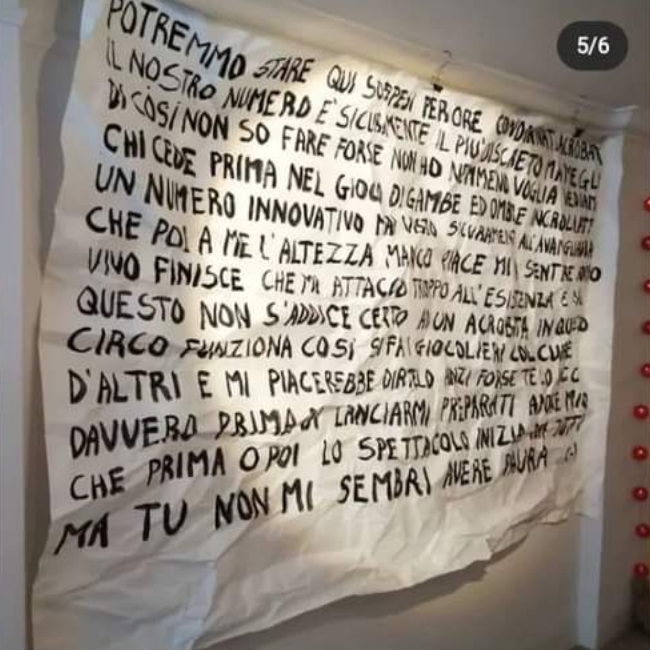 5/6
POTREMMO STARE QUI SOSPESI PER ORE CONDANNATI ACROBATI
IL NOSTRO NUMERO E' SICURAMENTE IL PIU' DISCRETO MA MEGLI
DI COSÍ NON SO FARE FORSE NON HO NEMMENO VOGLIA VEDIAM
CHI CEDE PRIMA NEL GIOCO DI GAMBE ED OMBRE INCROLLATI
UN NUMERO INNOVATIVO MAI VISTO SICURAMENTE ALL'AVANGUARDIA
CHE POI A ME L'ALTEZZA MANCO PIACE MI SENTRE
VIVO FINISCE CHE MI ATTACCO TROPPO ALL'ESISTENZA E SI
QUESTO NON S'ADDICE CERTO A UN ACROBATA IN QUESTO
CIRCO FUNZIONA COSÍ SI FA I GIOCOLIERI COL CUORE
D'ALTRI E MI PIACEREBBE DIRTELO ANZI FORSE TE LO
DAVVERO PRIMA X LANCIARMI PREPARATI AMORE MIO
CHE PRIMA O POI LO SPETTACOLO INIZIA TUTTI
MA TU NON MI SEMBRI AVERE PAURA